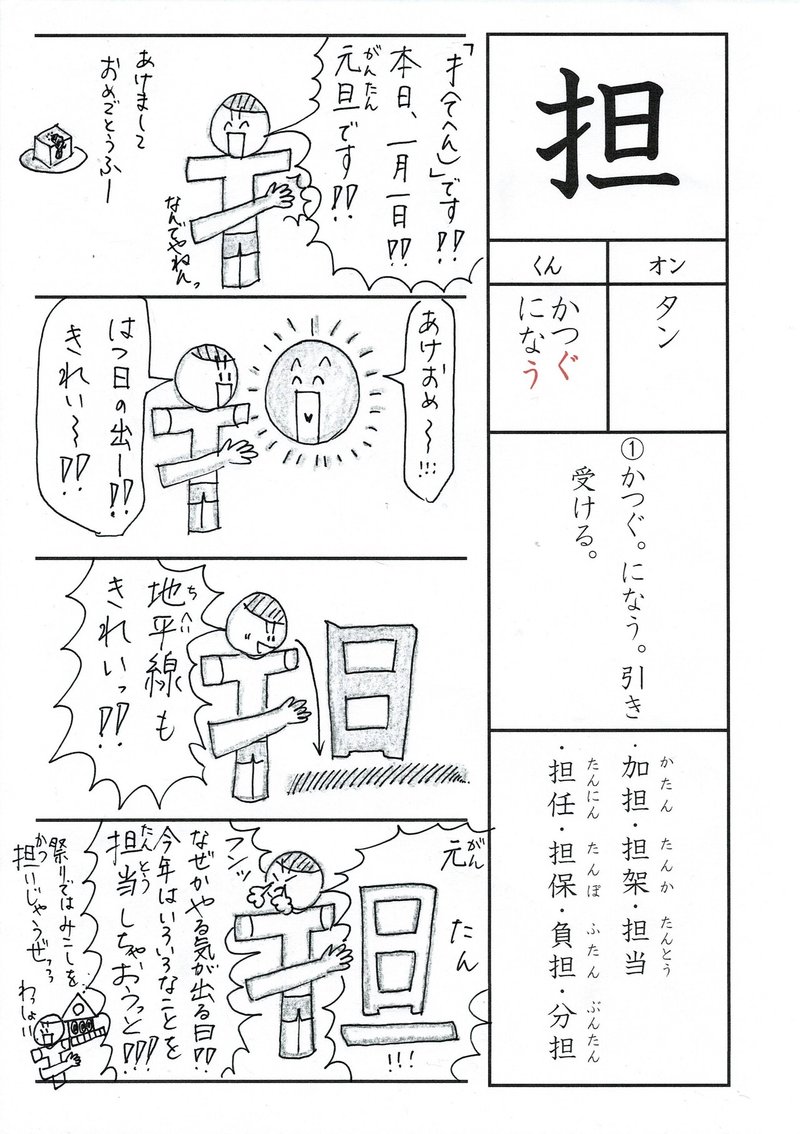 担
オン
くん
タン
かつぐ
になう
①かつぐ。になう。引き
受ける。
かたん たんか たんとう
・加担・担架・担当
たんにん たんぽ ふたん ぶんたん
・担任・担保・負担・分担
「扌(てへん)」です!!
本日、一月一日!!
がんたん
元旦です!!
なんでやねんっ
あけまして
おめでとうふー
あけおめ〜!!!
はつ日の出ー!!
きれい〜!!
日
ちへいせん
地平線も
きれいっ!!
元
がん
たん
旦
!!!
フンッ
なぜかやる気が出る日!!
今年はいろいろなことを
たんとう
担当しちゃおうっと!!!
祭りではみこしを
かつ
担いじゃうぜっっ
わっしょい